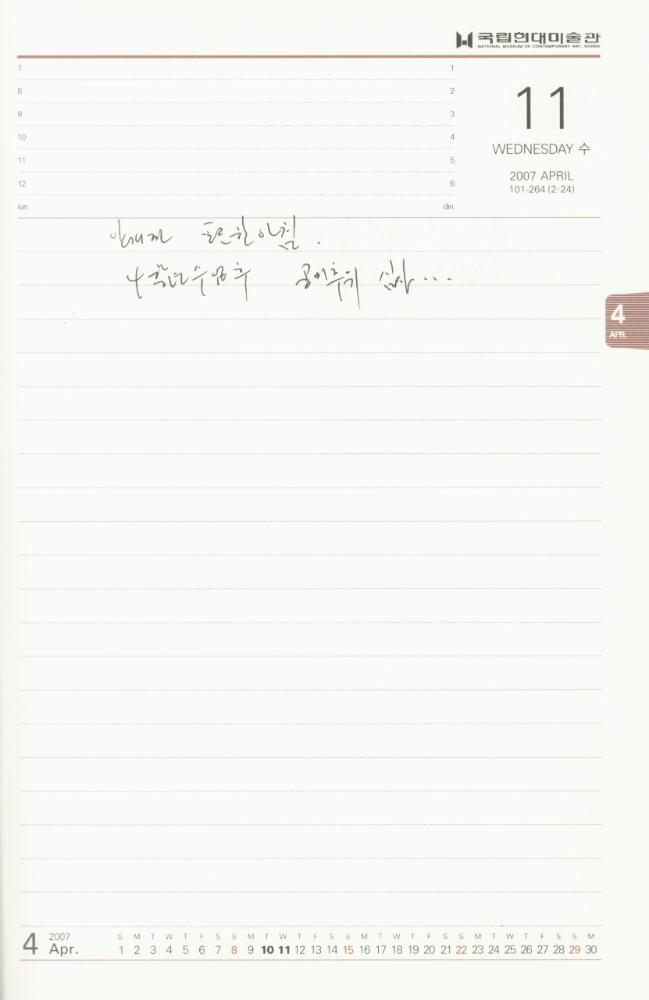 국립현대미술관
NATIONAL MUSEUM OF CONTEMPORARY ART, KOREA
7 1
8 2
9 3
10 4
11 5
12 6
lun. din.
11
WEDNESDAY 수
2007 APRIL
101-264 (2-24)
아침.
4
4
APR.
4 2007 Apr.
S M T W T F S S M T W T F S S M T W T F S S M T W T F S S M
1 2 3 4 5 6 7 8 9 10 11 12 13 14 15 16 17 18 19 20 21 22 23 24 25 26 27 28 29 30